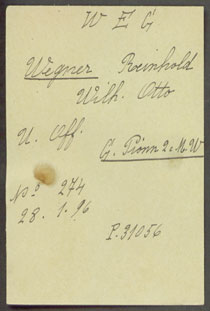 W E G
Wegner Reinhold
Wilh. Otto
U. Off.
G. Pionn 2. M. W
No 274
28. 1. 96
P. 31056